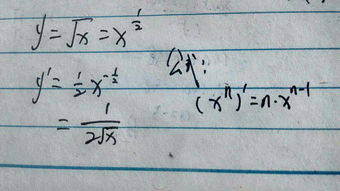 y = √x = x^{1/2}
y' = 1/2 x^{-1/2}
= 1/(2√x)
(x^n)' = n·x^{n-1}